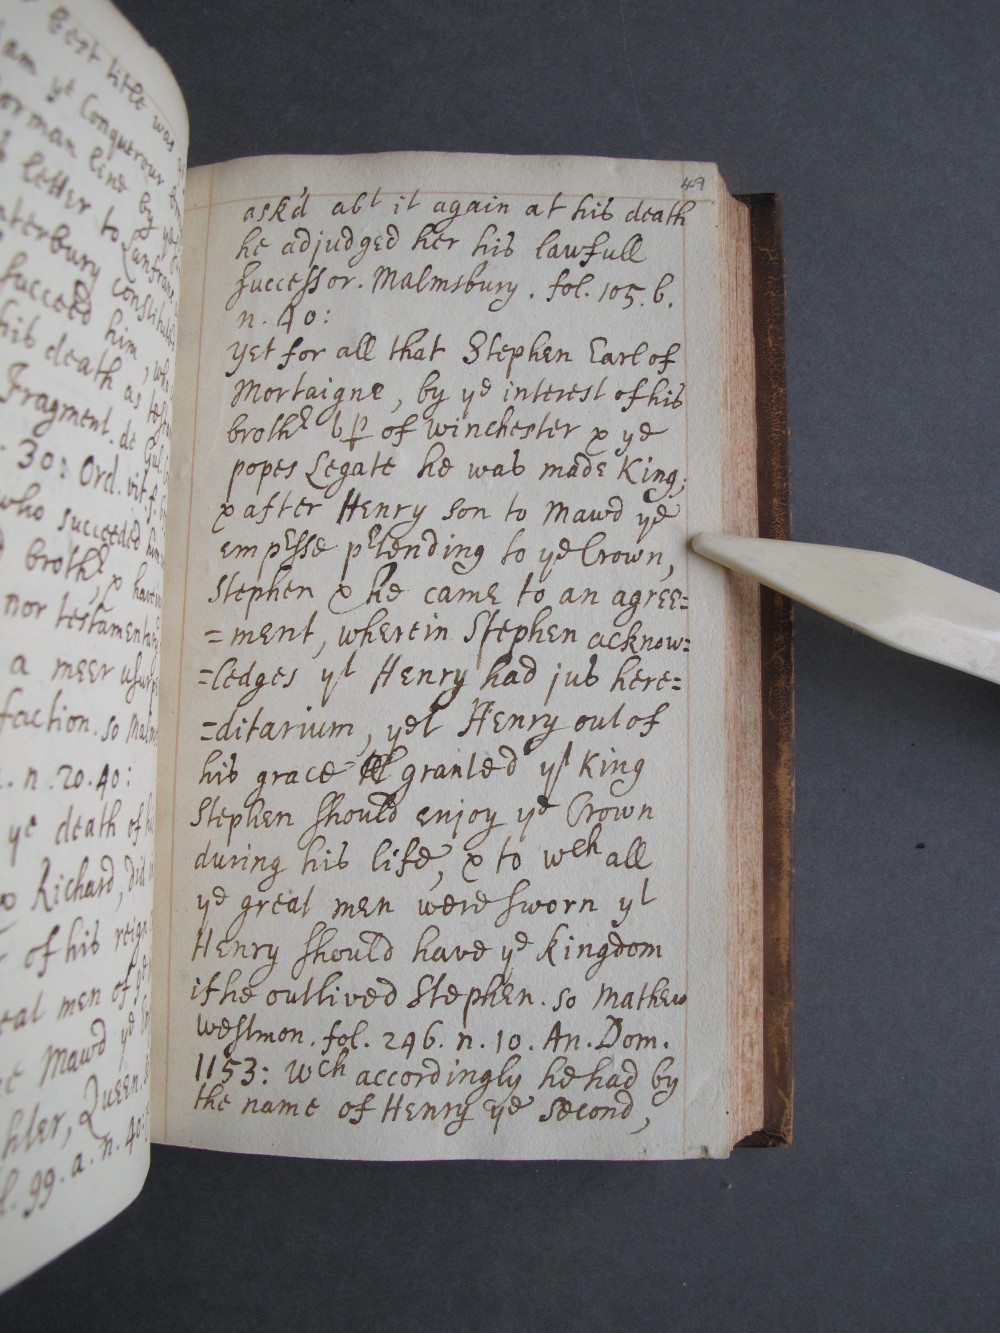 best title was
am ye Conquerour
orman line by
letter to Lanfranc
nterbury constitut
succeed him, who
his death as
Fragment. de Gul.
30: Ord. vit. f.
who succeeded him
broth^r, & have
nor testamentary
a meer usurp
faction. so Malm
. n. 20. 40:
ye death of
& Richard, did
of his reign
eat men of ye
Mawd ye
hter, Queen.
l. 99. a. n. 40:
49
ask'd abt it again at his death
he adjudged her his lawfull
successor. Malmsbury. fol. 105. b.
n. 40:
yet for all that Stephen Earl of
Mortaigne, by ye interest of his
brothr bp of winchester & ye
popes Legate he was made King;
& after Henry son to Mawd ye
empresse pretending to ye Crown,
Stephen & he came to an agree=
=ment, wherein Stephen acknow=
=ledges yt Henry had jus here=
=ditarium, yet Henry out of
his grace granted yt King
Stephen should enjoy ye Crown
during his life, & to wch all
ye great men were sworn yt
Henry should have ye kingdom
if he outlived Stephen. so Mathew
westmon. fol. 246. n. 10. An. Dom.
1153: wch accordingly he had by
the name of Henry ye second,